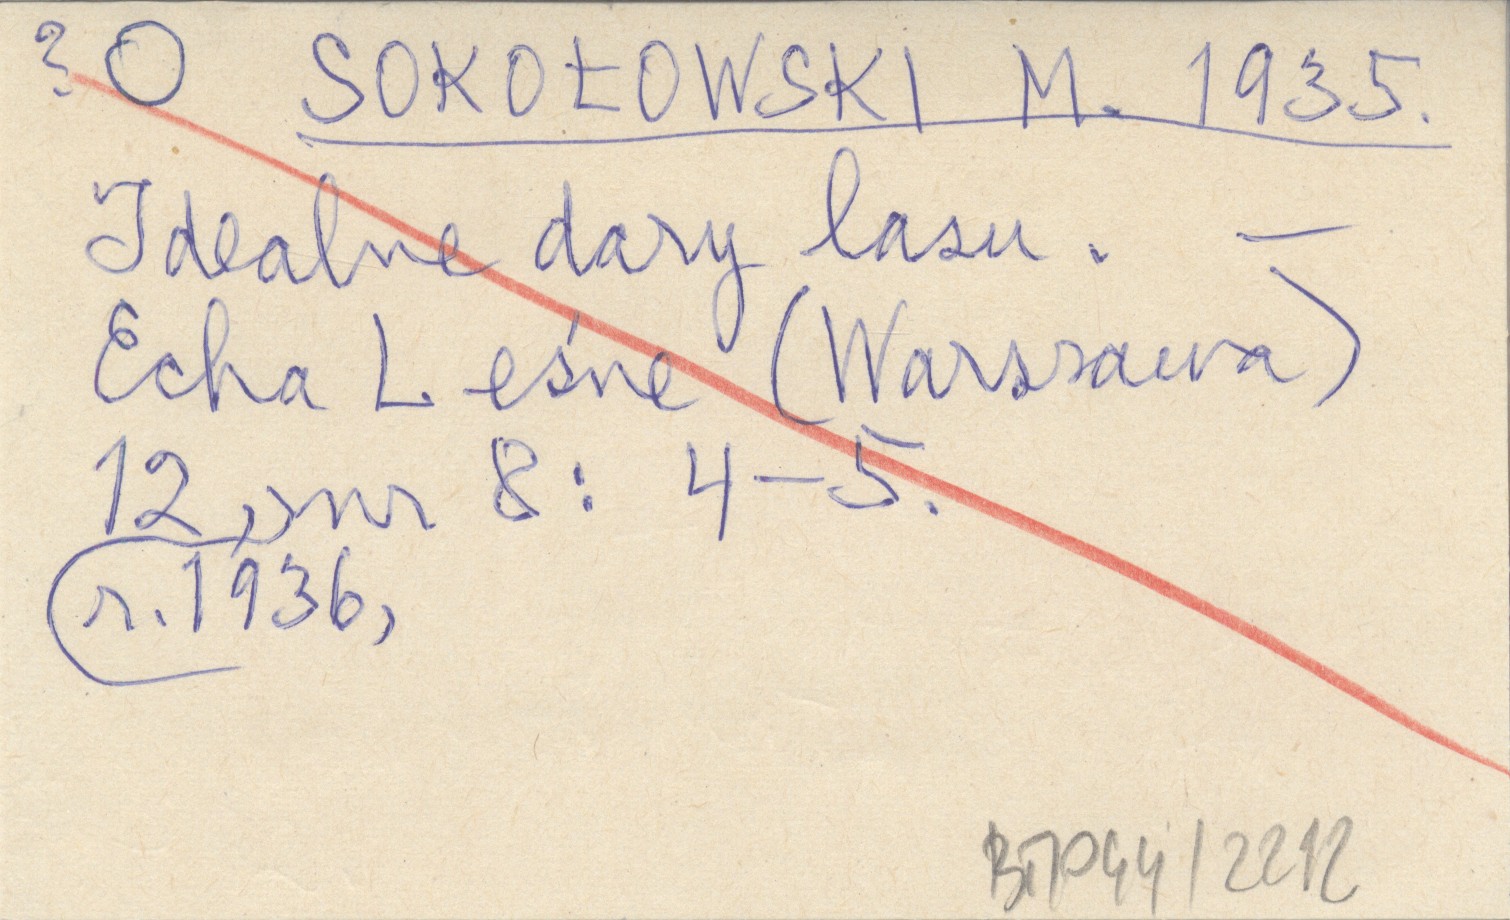 ? O SOKOŁOWSKI M. 1935.
Idealne dary lasu. —
Echa Leśne (Warszawa)
12, nr 8: 4–5.
r. 1936,
2212